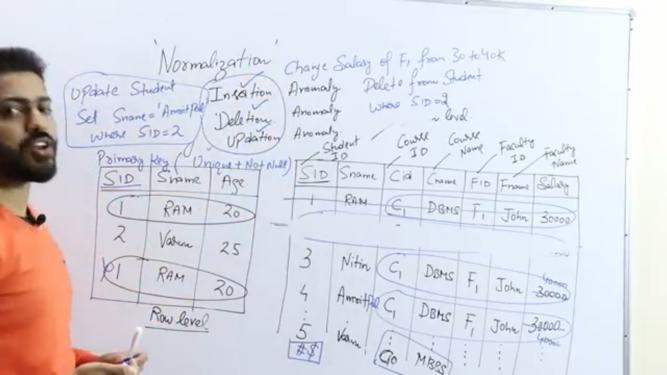 'Normalization'
Change Salary of F1 from 30 to 40K
Update Student
Set Sname='Amritpal'
Where SID=2
Insertion Anomaly
Deletion Anomaly
Updation Anomaly
Delete from Student
Where SID=2
Primary Key (Unique+Not Null)
SID Sname Age
1 RAM 20
2 Varun 25
1 RAM 20
Row level
Student ID
Course ID
Course Name
Faculty ID
Faculty Name
SID Sname Cid Cname FID Fname Salary
1 RAM C1 DBMS F1 John 30000
3 Nitin C1 DBMS F1 John 40000 30000
4 Amritpal C1 DBMS F1 John 30000 40000
5 Varun C10 MBBS